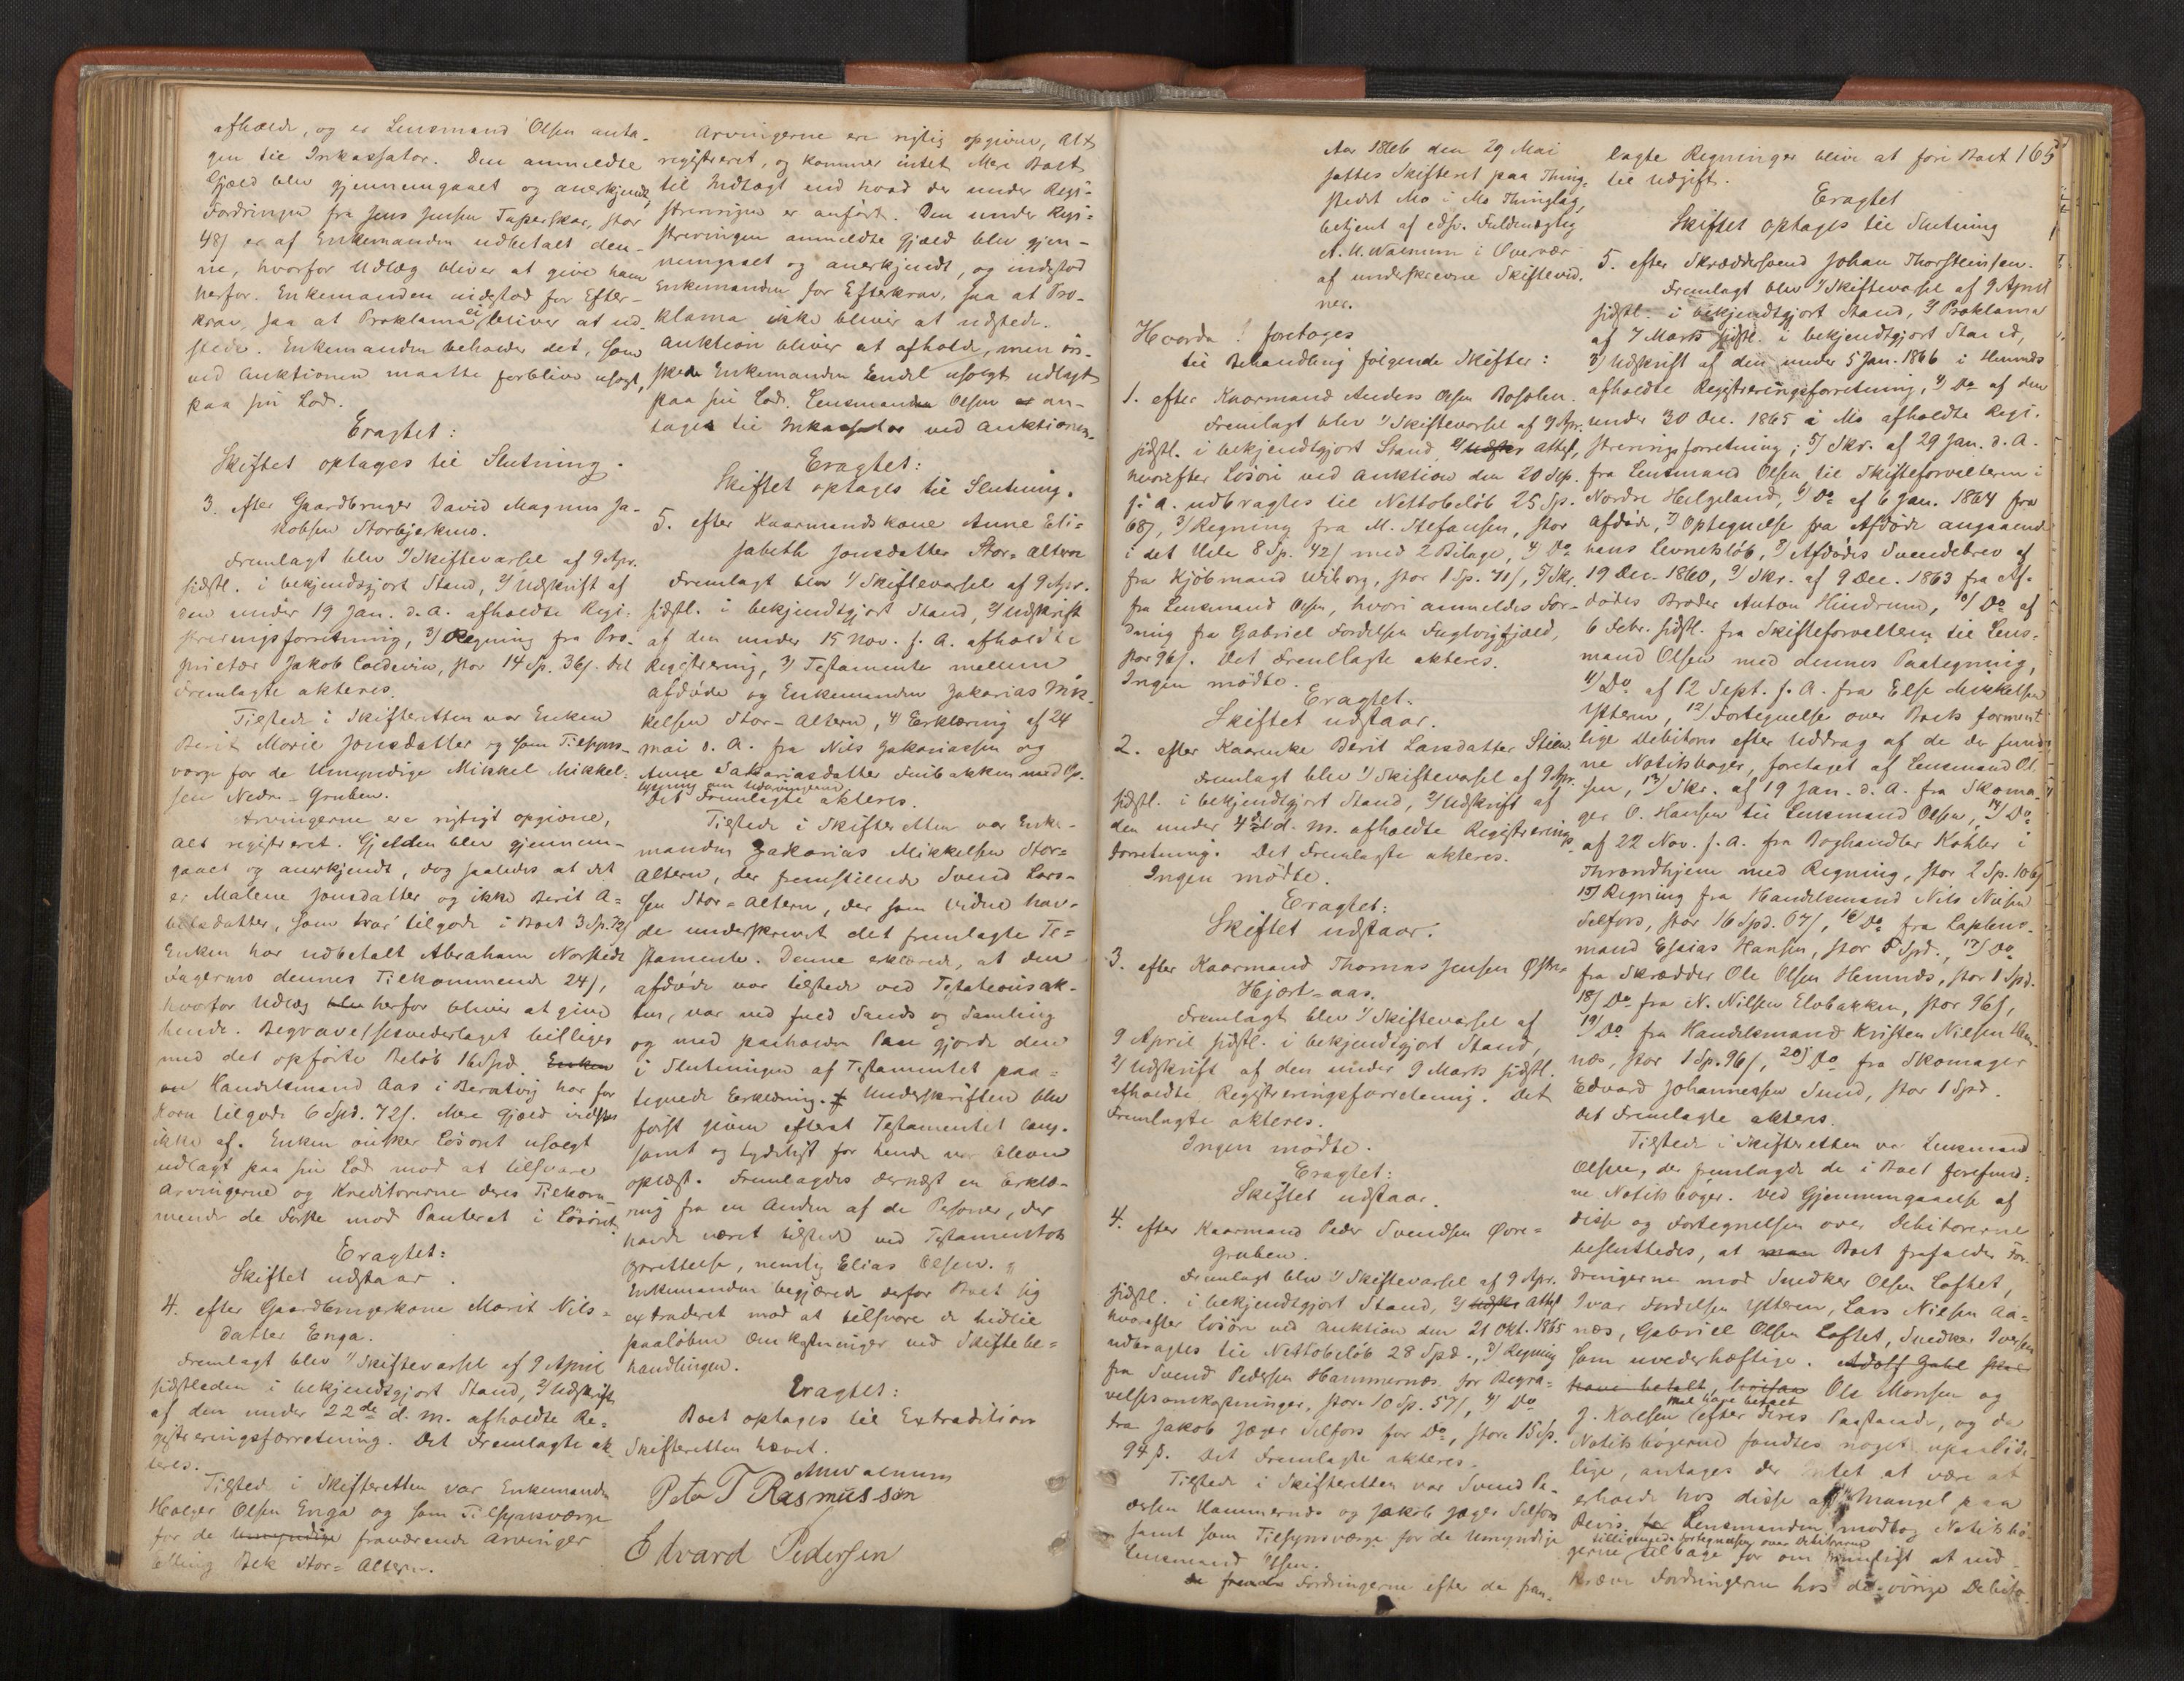 afholde, og er Lensmand Olsen anta-
gen til Inkassator. Den anmeldte
Gjæld blev gjennemgaaet og anerkjendt,
Fordringen fra Jens Jensen Taperskar, stor
48 s er af Enkemanden udbetalt den-
ne, hvorfor Udlæg bliver at give ham
herfor. Enkemanden indestod for Efter-
krav, saa at Proklama ei bliver at ud-
stede. Enkemanden beholder det, som
ved Auktionen maatte forblive usolgt,
paa sin Lod.
Eragtet:
Skiftet optages til Slutning.
3. efter Gaardbruger David Magnus Ja-
kobsen Storbjerkmo.
Fremlagt blev 1/ Skiftevarsel af 9 Apr.
sidstl. i bekjendtgjort Stand, 2/ Udskrift af
den under 19 Jan. d. A. afholdte Regi-
streringsforretning, 3/ Regning fra Pro-
prietær Jakob Coldevin, stor 14 Sp. 36 s. Det
Fremlagte akteres.
Tilstede i Skifteretten var Enken
Berit Marie Jonsdatter og som Tilsyns-
værge for de Umyndige Mikkel Mikkel-
sen Nedr-Gruben.
Arvingerne ere rigtigt opgivne,
alt registreret. Gjelden blev gjennem-
gaaet og anerkjendt, dog saaledes at det
er Malene Jonsdatter og ikke Berit A-
belsdatter, som har tilgode i Boet 3 Sp. 72 s
Enken har udbetalt Abraham Norstedt
Vagermo dennes Tilkommende 24 s,
hvorfor Udlæg blev herfor bliver at give
hende. Begravelsesvederlaget billiges
med det opførte Beløb 16 Spd. Enken
en Handelsmand Aas i Beratvig har for
Korn tilgode 6 Spd. 72 s. Mere Gjæld vidstes
ikke af. Enken ønsker Løsøret usolgt
udlagt paa sin Lod mod at tilsvare
Arvingerne og Kreditorerne deres Tilkom-
mende de Første mod Panteret i Løsøret.
Eragtet:
Skiftet udstaar.
4. efter Gaardbrugerkone Marit Nils-
datter Enga.
Fremlagt blev 1/ Skiftevarsel af 9 April
sidstleden i bekjendtgjort Stand, 2/ Udskrift
af den under 22de d. M. afholdte Re-
gistreringsforretning. Det Fremlagte ak-
teres.
Tilstede i Skifteretten var Enkemanden
Holger Olsen Enga og som Tilsynsværge
for de Umyndige fraværende Arvinger
Elling Bek Stor-Altern.
Arvingerne ere rigtig opgivne, Alt
registreret, og kommer intet Mere Boet
til Indtægt end hvad der under Regi-
streringen er anført. Den under Regi-
streringen anmeldte Gjæld blev gjen-
nemgaaet og anerkjendt, og indestod
Enkemanden for Efterkrav, saa at Pro-
klama ikke bliver at udstede.
Auktion bliver at afholde, men øn-
skede Enkemanden Endel usolgt udlagt
paa sin Lod. Lensmanden Olsen er an-
tages til Inkassator ved Auktionen.
Eragtet:
Skiftet optages til Slutning.
5. efter Kaarmandskone Anne Eli-
sabeth Jonsdatter Stor-Altern
Fremlagt blev 1/ Skiftevarsel af 9 Apr.
sidstl. i bekjendtgjort Stand, 2/ Udskrift
af den under 15 Nov. f. A. afholdte
Registrering, 3/ Testamente mellem
Afdøde og Enkemanden Zakarias Mik-
kelsen Stor-Altern, 4/ Erklæring af 24
Mai d. A. fra Nils Zakariassen og
Anne Zakariasdatter Finbakken med Op-
lysning om Udarvingerne
Det Fremlagte akteres.
Tilstede i Skifteretten var Enke-
manden Zakarias Mikkelsen Stor-
Altern, der fremstillede Svend Lars-
sen Stor-Altern, der som Vidne hav-
de underskrevet det fremlagte Te-
stamente. Denne erklærede, at den
afdøde var tilstede ved Testationsak-
ten, var ved fuld Sands og Samling
og med paaholden Pen gjorde den
i Slutningen af Testamentet paa-
tegnede Erklæring. Underskriften blev
først given efterat Testamentet lang-
somt og tydeligt for hende var bleven
oplæst. Fremlagdes dernæst en Erklæ-
ring fra en Anden af de Personer, der
havde været tilstede ved Testamentets
Oprettelse, nemlig Elias Olsen.
Enkemanden begjærede derfor Boet sig
extraderet mod at tilsvare de hidtil
paaløbne Omkostninger ved Skiftebe-
handlingen.
Eragtet:
Boet optages til Extradition
Skifteretten hævet.
AUWalnum
Peter T Rasmussen
Edvard Pedersen
165
Aar 1866 den 29 Mai
sattes Skifteret paa Thing-
stedet Mo i Mo Thinglag,
betjent af edsv. Fuldmægtig
A. U. Walnum i Overvær
af underskrevne Skiftevid-
ner.
Hvorda! foretoges
til Behandling følgende Skifter:
1. efter Kaarmand Anders Olsen Bosolen.
Fremlagt blev 1/ Skiftevarsel af 9 Apr.
sidstl. i bekjendtgjort Stand, 2/ Udskr Attest,
hvorefter Løsøre ved Auktion den 20 Sep.
f. A. udbragtes til Nettobeløb 25 Sp.
68 s, 3/ Regning fra M. Stefansen, stor
i det Hele 8 Sp. 42 s med 2 Bilage, 4/ Do
fra Kjøbmand Wiborg, stor 1 Sp. 71 s, 5/ Skr.
fra Lensmand Olsen, hvori anmeldes For-
dring fra Gabriel Fordelsen Fuglvigfjæld,
stor 96 s. Det Fremlagte akteres.
Ingen mødte.
Eragtet.
Skiftet udstaar.
2. efter Kaarenke Berit Larsdatter Stien.
Fremlagt blev 1/ Skiftevarsel af 9 Apr.
sidstl. i bekjendtgjort Stand, 2/ Udskrift af
den under 4de d. M. afholdte Registrerings-
forretning. Det Fremlagte akteres.
Ingen mødte.
Eragtet:
Skiftet udstaar.
3. efter Kaarmand Thomas Jensen Østre
Hjort-aas.
Fremlagt blev 1/ Skiftevarsel af
9 April sidstl. i bekjendtgjort Stand,
2/ Udskrift af den under 9 Marts sidstl.
afholdte Registreringsforretning. Det
Fremlagte akteres.
Ingen mødte.
Eragtet:
Skiftet udstaar.
4. efter Kaarmand Peder Svendsen Øvre-
Gruben.
Fremlagt blev 1/ Skiftevarsel af 9 Apr.
sidstl. i bekjendtgjort Stand, 2/ Udskr Attest
hvorefter Løsøre ved Auktion den 21 Okt. 1865
udbragtes til Nettobeløb 28 Spd., 3/ Regning
fra Svend Pedersen Hammernæs for Begra-
velsesomkostninger, stor 10 Sp. 57 s, 4/ Do
fra Jakob Jæger Selfors for Do, stor 15 Sp.
94 s. Det Fremlagte akteres.
Tilstede i Skifteretten var Svend Pe-
dersen Hammernæs og Jakob Jæger Selfors
samt som Tilsynsværge for de Umyndige
Lensmand Olsen.
Fordringerne efter de frem-
lagte Regninger blive at føre Boet
til Udgift.
Eragtet
Skiftet optages til Slutning
5. efter Skræddersvend Johan Thorsteinsen.
Fremlagt blev 1/ Skiftevarsel af 9 April
sidstl. i bekjendtgjort Stand, 2/ Proklama
af 7 Marts sidstl. i bekjendtgjort Stand,
3/ Udskrift af den under 5 Jan. 1866 i Hemnæs
afholdte Registreringsforretning, 4/ Do af den
under 30 Dec. 1865 i Mo afholdte Regi-
streringsforretning; 5/ Skr. af 29 Jan. d. A.
fra Lensmand Olsen til Skifteforvalteren i
Nordre Helgeland, 6/ Do af 6 Jan. 1864 fra
Afdøde, 7/ Optegnelse fra Afdøde angaaende
hans Levnetsløb, 8/ Afdødes Svendebrev af
19 Dec. 1860, 9/ Skr. af 9 Dec. 1863 fra Af-
dødes Broder Anton Hindrum, 10/ Do af
6 Febr. sidstl. fra Skifteforvalteren til Lens-
mand Olsen med dennes Paategning,
11/ Do af 12 Sept. f. A. fra Else Mikkelsen
Ytteren, 12/ Fortegnelse over Boets forment-
lige Debitorer efter Uddrag af de der fund-
ne Notitsbøger, foretaget af Lensmand Ol-
sen, 13/ Skr. af 19 Jan. d. A. fra Skoma-
ger O. Hansen til Lensmand Olsen, 14/ Do
af 22 Nov. f. A. fra Boghandler Kohler i
Throndhjem med Regning, stor 2 Sp. 106 s
15/ Regning fra Handelsmand Nils Nilsen
Selfors, stor 16 Spd. 67 s, 16/ Do fra Laplens-
mand Esaias Hansen, stor 5 Spd., 17/ Do
fra Skrædder Ole Olsen Hemnæs, stor 1 Spd.
18/ Do fra N. Nilsen Elvbakken, stor 96 s,
19/ Do fra Handelsmand Kristen Nilsen Hem-
næs, stor 1 Sp. 96 s, 20/ Do fra Skomager
Edvard Johannessen Sund, stor 1 Spd.
Det Fremlagte akteres.
Tilstede i Skifteretten var Lensmand
Olsen, der fremlagde de i Boet forefund-
ne Notitsbøger. Ved Gjennemgaaelse af
disse og Fortegnelsen over Debitorerne
besluttedes, at man Boet frafalder For-
dringerne mod Snedker Olsen Loftet,
Ivar Fordelsen Ytteren, Lars Nilsen Aa-
næs, Gabriel Olsen Loftet, Snedker Iversen
som uvederhæftige. Adolf Gabl skal
have betalt, ligesaa Ole Monsen og
J. Karlsen skal have betalt efter deres Paastand, og da
Notitsbøgerne fandtes noget upaalide-
lige, antages der Intet at være at
erholde hos disse af Mangel paa
Bevis. Lensmanden modtog Notitsbø-
gerne tilligemed Fortegnelsen over Debitorerne
tilbage for om muligt at ind-
kræve Fordringerne hos de øvrige Debito-